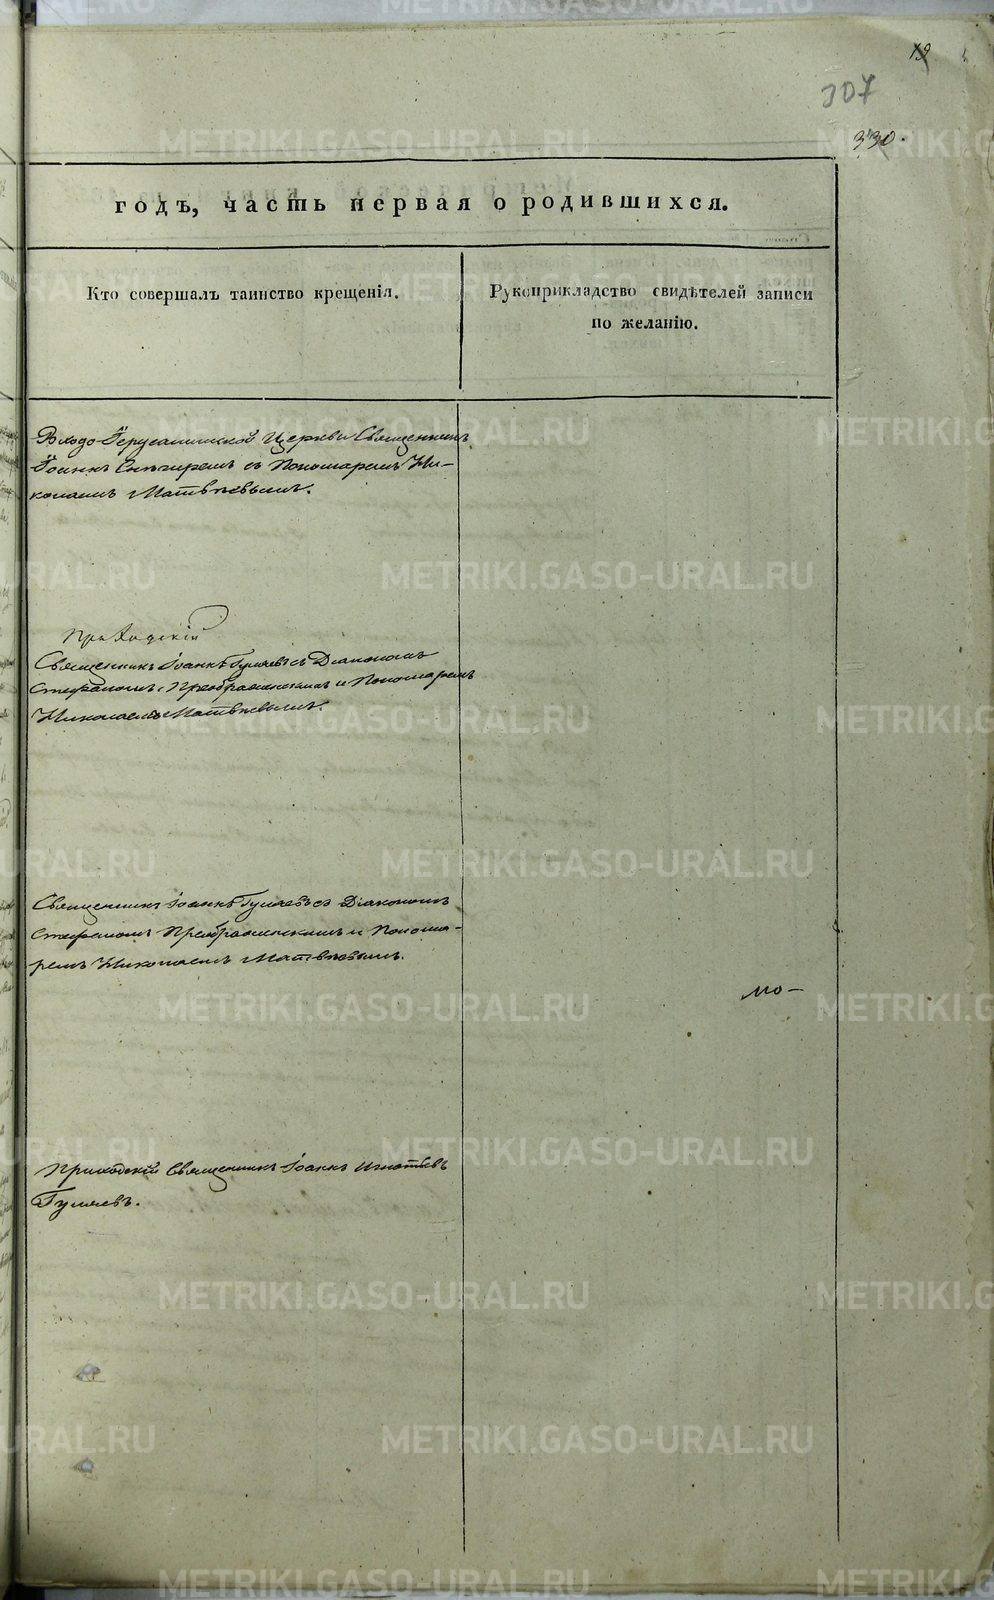 19
307
330.
годъ, часть первая о родившихся.
Кто совершалъ таинство крещенія.
Рукоприкладство свидѣтелей записи
по желанію.
Входо-Іерусалимской Церкви Священникъ
Іоаннъ Снѣгирев съ Пономаремъ Ни-
колаемъ Матвѣевымъ.
Приходскій
Священникъ Іоаннъ Гуляевъ съ Діакономъ
Стефаномъ Преображенскимъ и Пономаремъ
Николаемъ Матвѣевымъ.
Священникъ Іоаннъ Гуляевъ съ Діакономъ
Стефаномъ Преображенскимъ и Понома-
ремъ Николаемъ Матвѣевымъ.
мо-
Приходскій Священникъ Іоаннъ Игнатьевъ
Гуляевъ.
METRIKI.GASO-URAL.RU